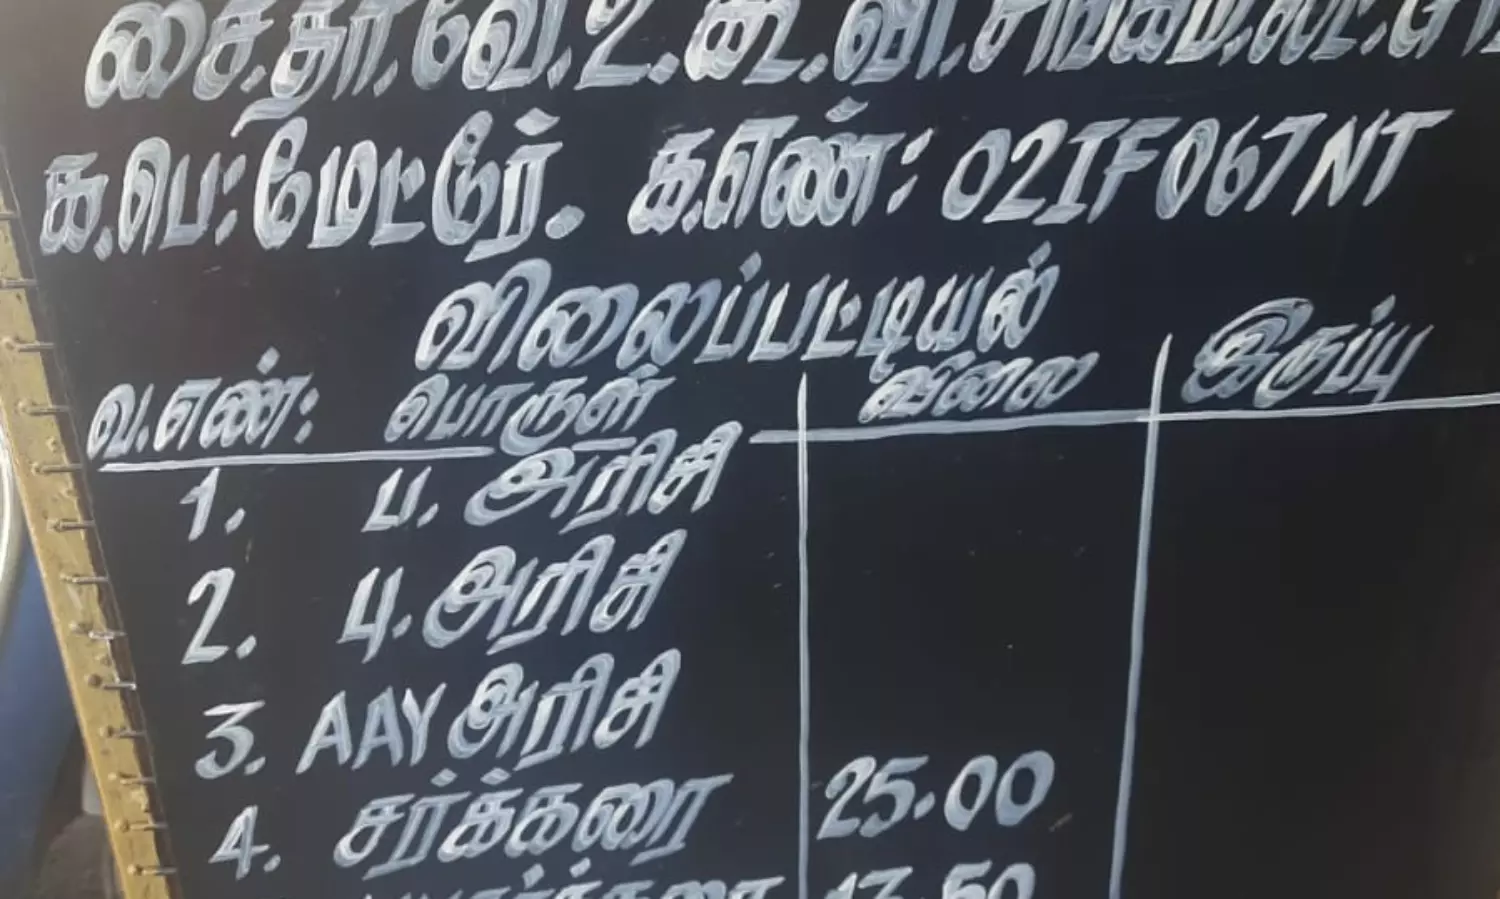 சை.தா.வே.உ.கூ.வி.சங்கம்.லிட்.
க.பெ: மேட்டூர். க.எண்: 02IF067NT
விலைப்பட்டியல்
வ.எண்: பொருள் விலை இருப்பு
1. ப. அரிசி
2. பு. அரிசி
3. AAY அரிசி
4. சர்க்கரை 25.00
13.50